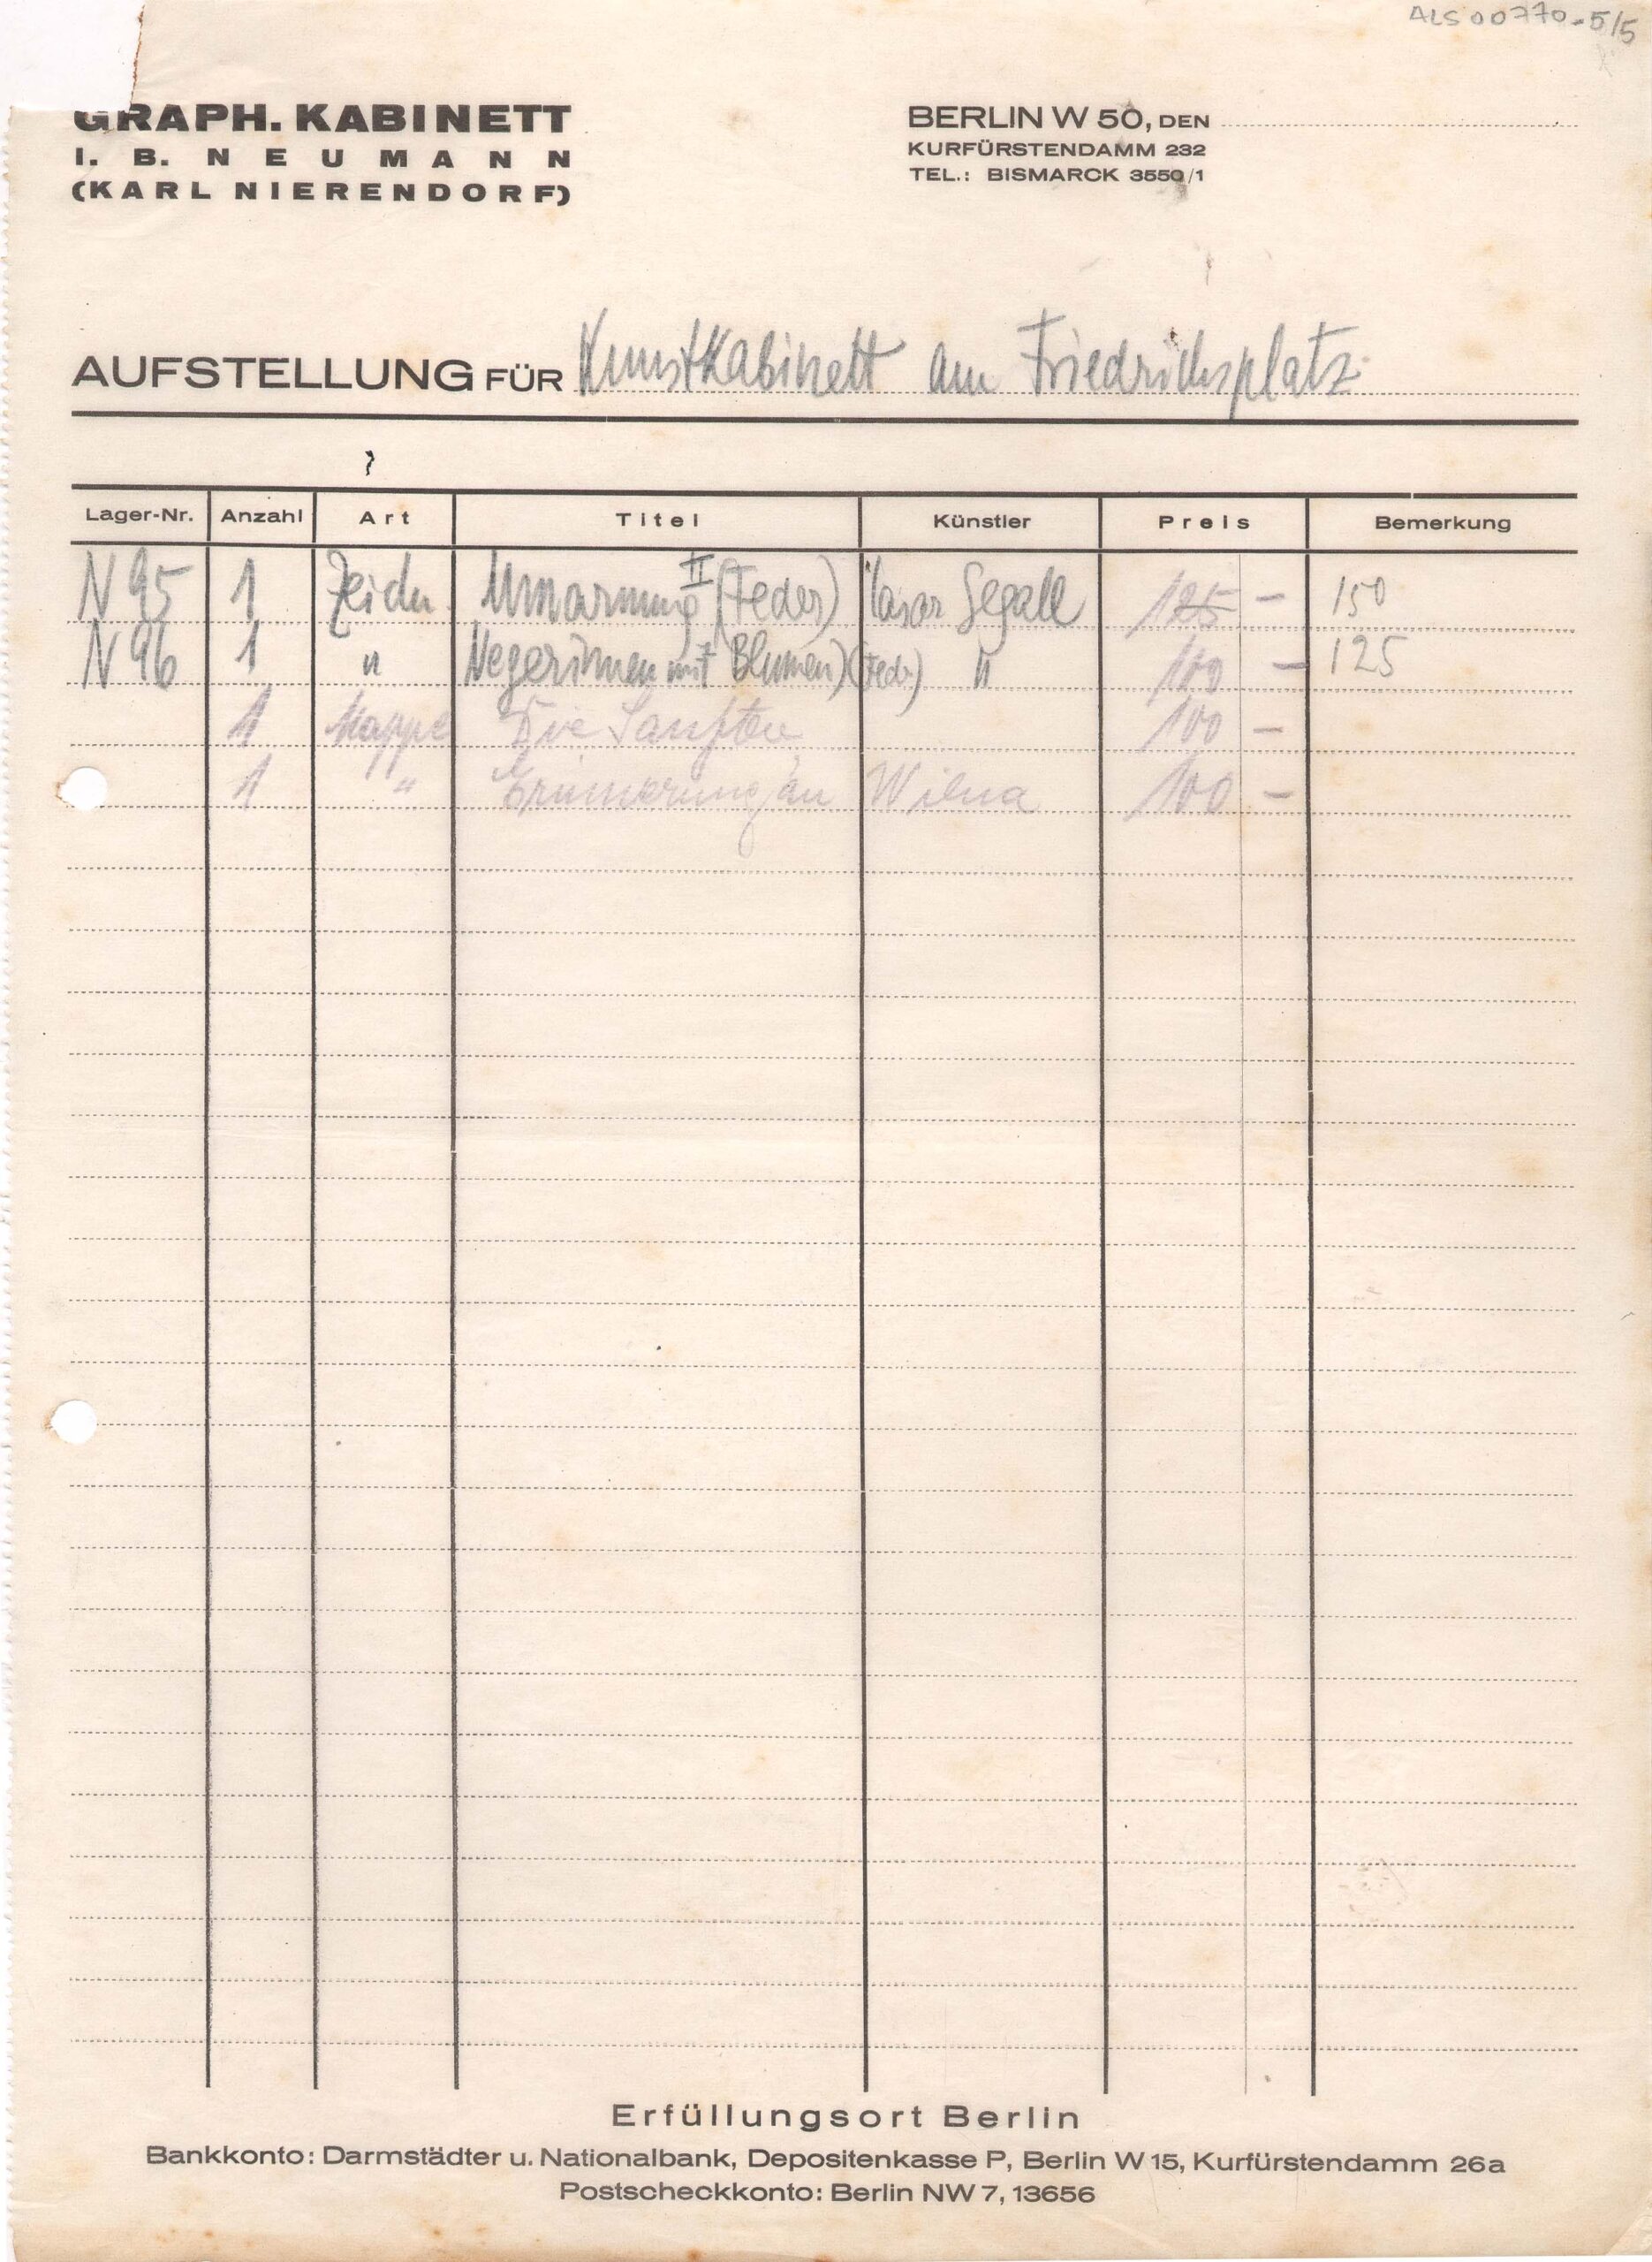 ALS 00770-5/5
GRAPH. KABINETT
I. B. NEUMANN
(KARL NIERENDORF)
BERLIN W 50, DEN
KURFÜRSTENDAMM 232
TEL.: BISMARCK 3550/1
AUFSTELLUNG FÜR Kunstkabinett am Friedrichsplatz
Lager-Nr. Anzahl Art Titel Künstler Preis Bemerkung
N 95 1 Zeichn. Umarmung II (Feder) Lasar Segall 125 - 150
N 96 1 " Negerinnen mit Blumen) (Fedr.) " 100 - 125
1 Mappe Die Sanften 100 -
1 " Erinnerung an Wilna 100 -
Erfüllungsort Berlin
Bankkonto: Darmstädter u. Nationalbank, Depositenkasse P, Berlin W 15, Kurfürstendamm 26a
Postscheckkonto: Berlin NW 7, 13656